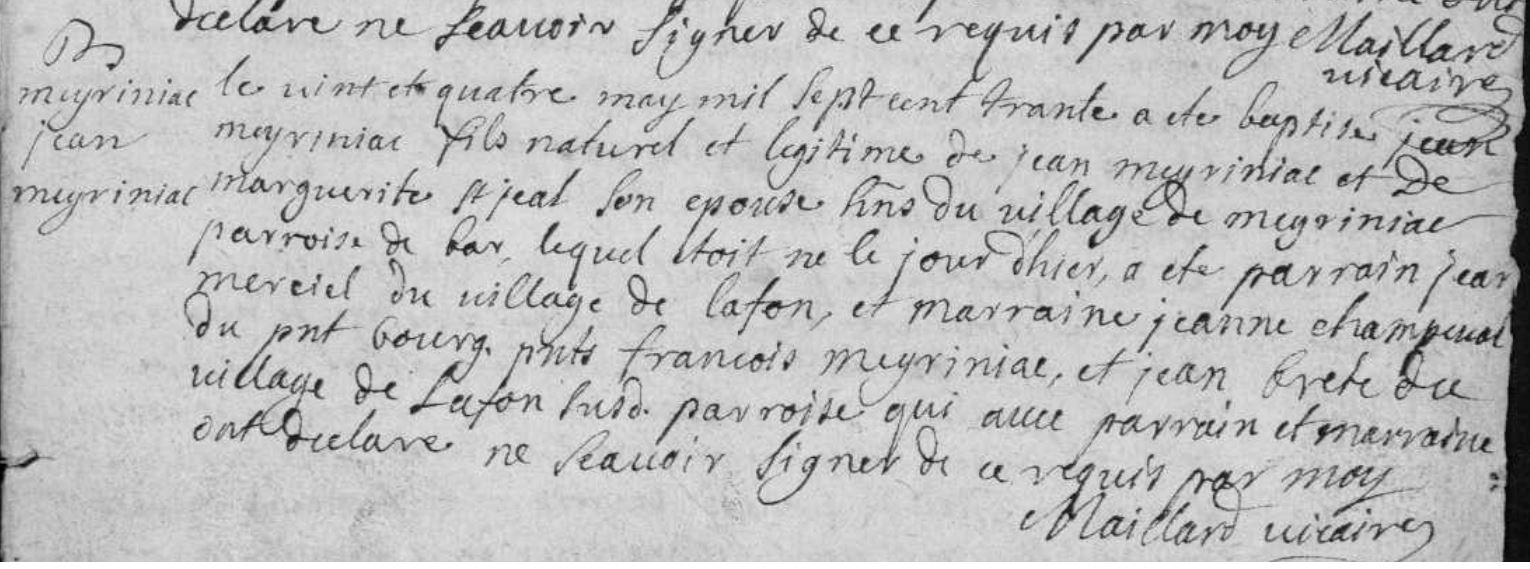 declare ne scavoir signer de ce requis par moy Maillard
vicaire
B
meyriniac
jean
meyriniac
le vint et quatre may mil sept cent trante a ete baptise jean
meyriniac fils naturel et legitime de jean meyriniac et de
marguerite st jeal son epouse hñs du village de meyriniac
parroise de bar, lequel etoit ne le jour d'hier, a ete parrain jean
merciel du village de lafon, et marraine jeanne champeval
du pnt bourg. pnts francois meyriniac, et jean brete du
village de Lafon susd. parroise qui avec parrain et marraine
ont declare ne scavoir signer de ce requis par moy
Maillard vicaire